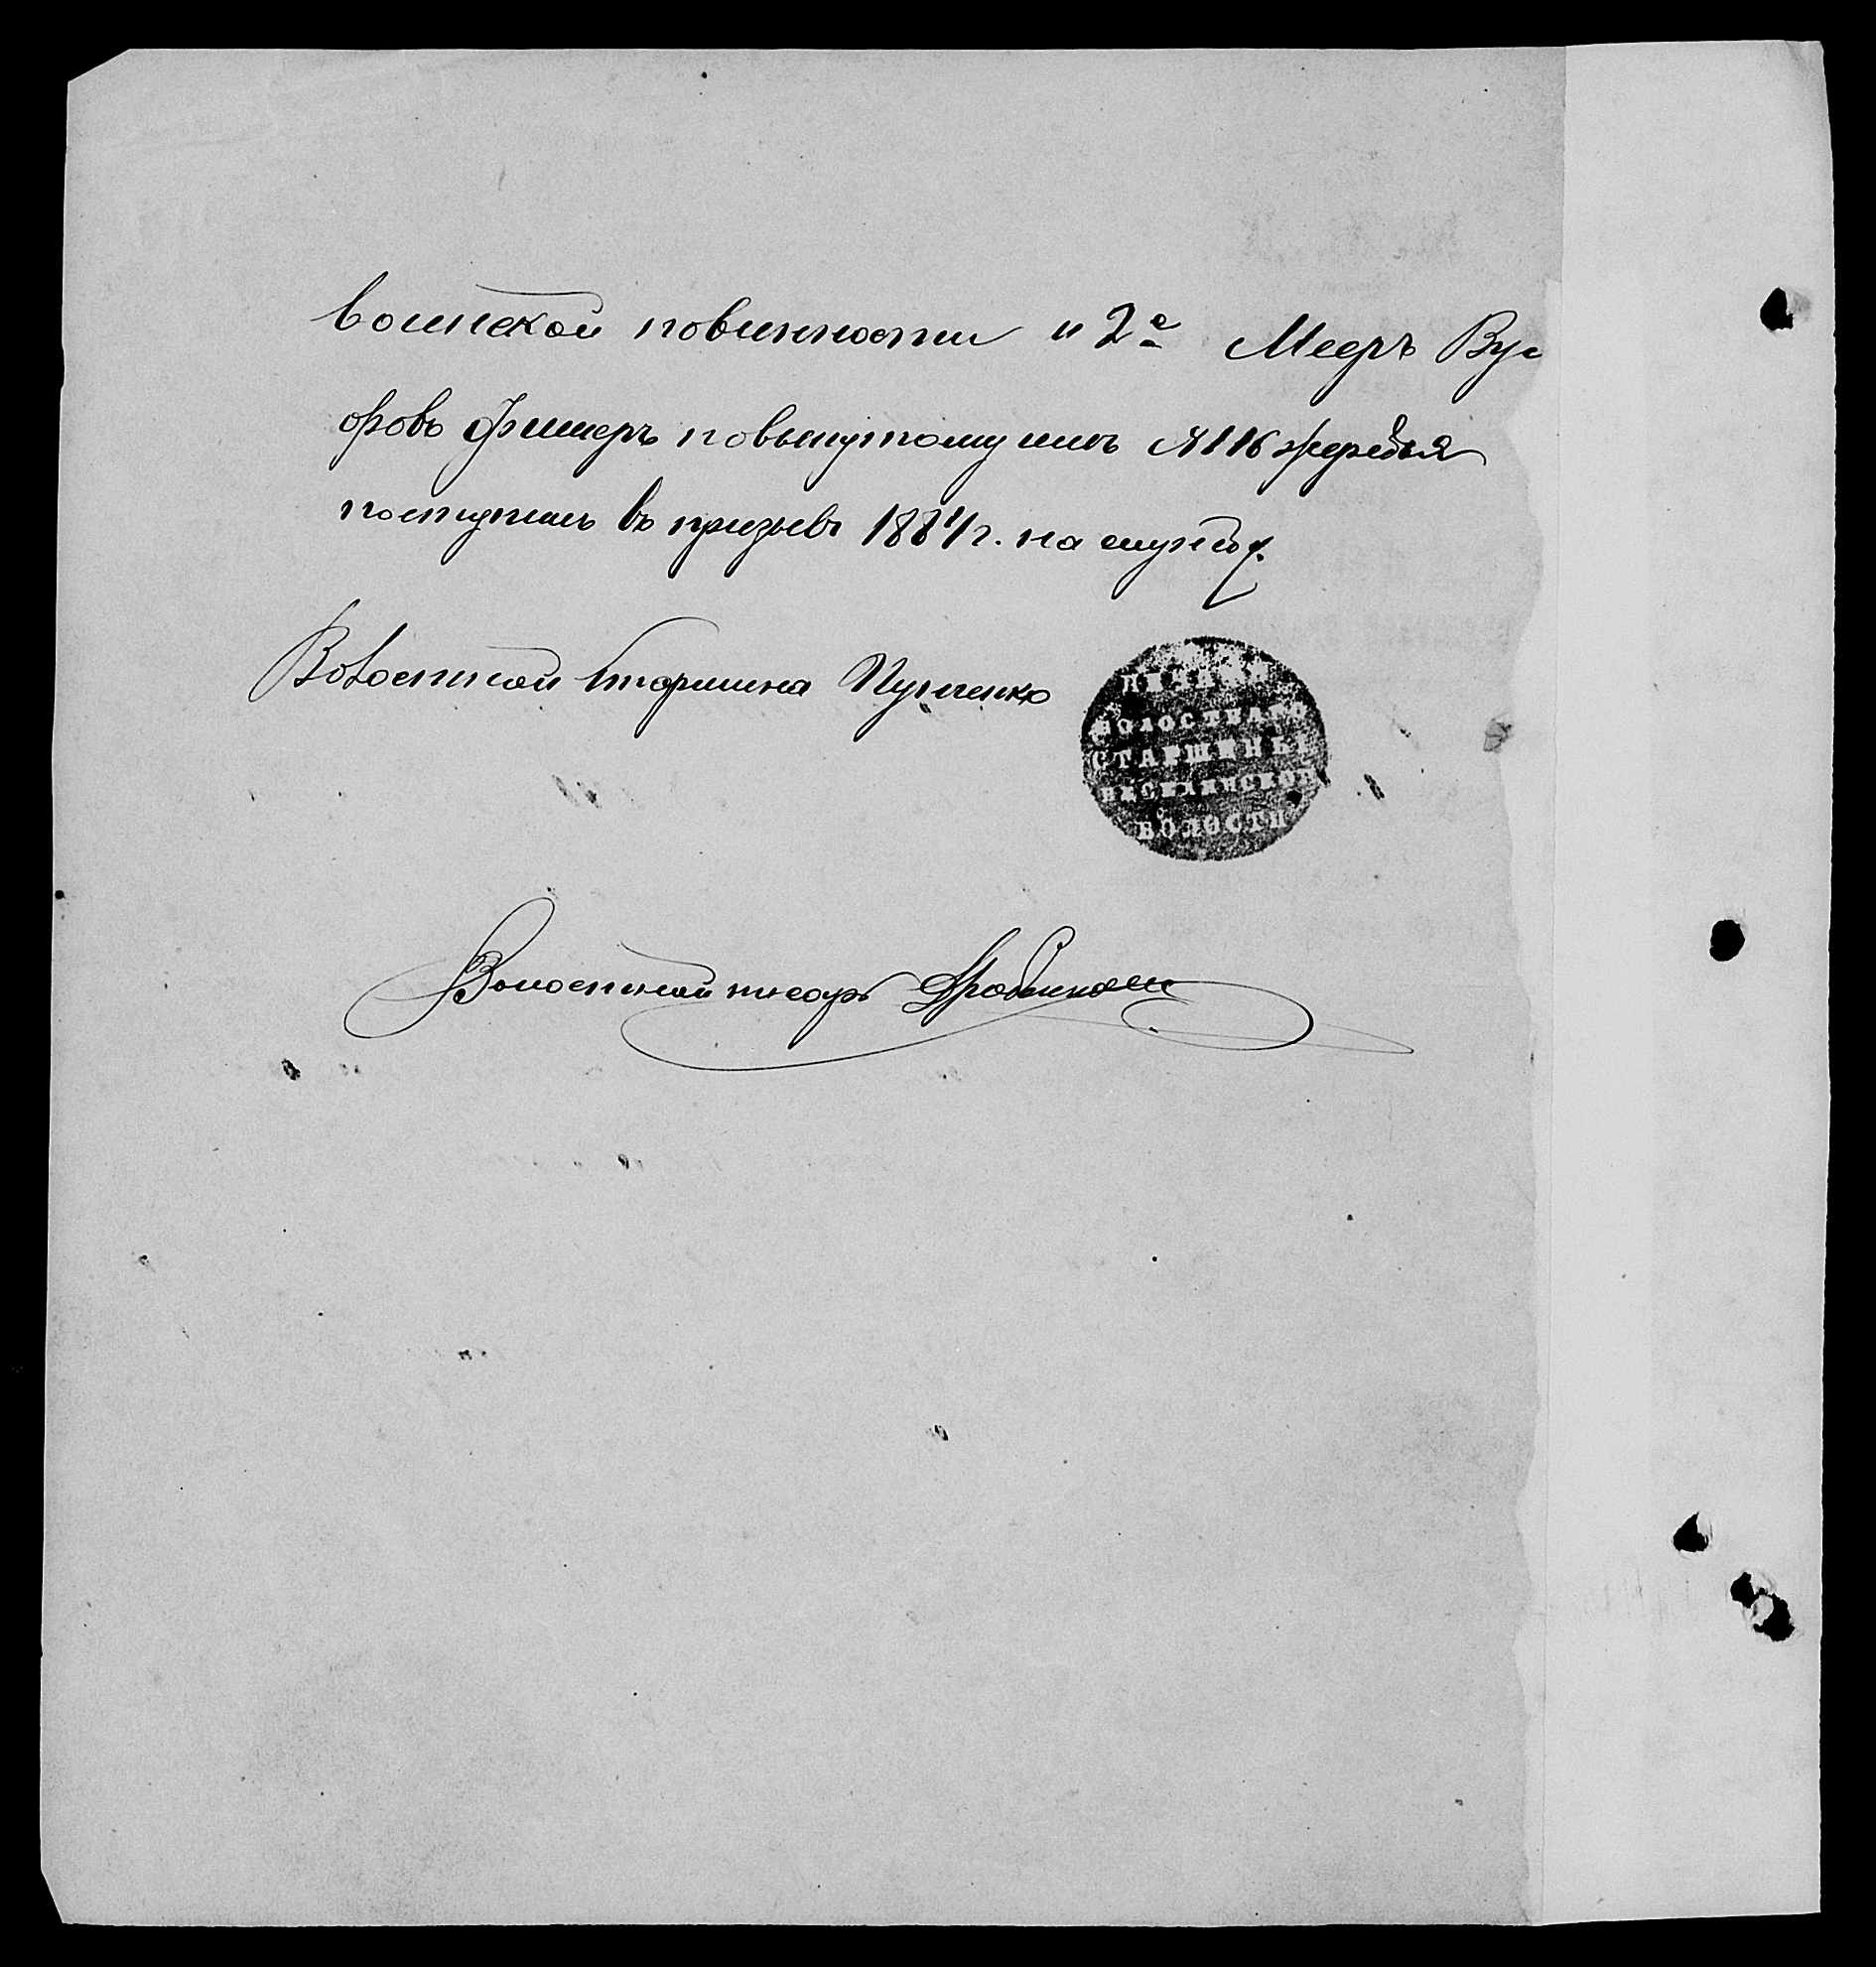 воинской повинности и 2е Мееръ Вул
фовъ Фишеръ по вынутому имъ № 116 жеребья
поступилъ въ призывъ 1881 г. на службу.
Волостной Старшина
ПЕЧАТЬ
ВОЛОСТНАГО
СТАРШИНЫ
ВОЛОСТИ
Волостной писарь